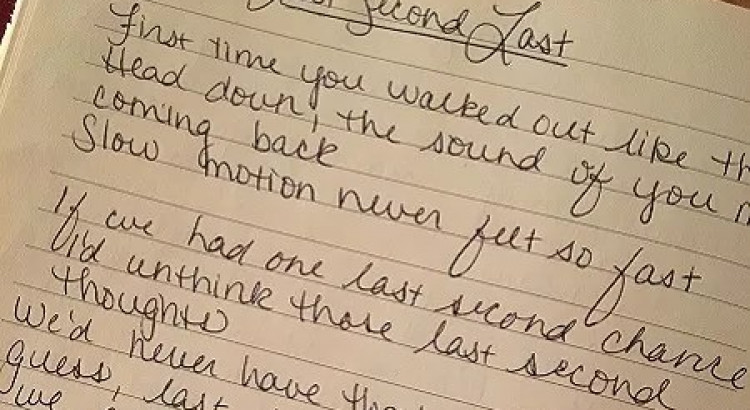 Second Last
First time you walked out like
Head down, the sound of you
coming back
Slow motion never felt so fast
If we had one last second chance
I'd unthink those last second
thoughts
We'd never have
guess, last
we